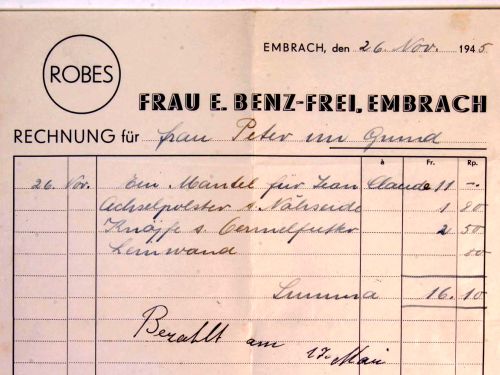 EMBRACH, den 26 Nov. 1945
ROBES
FRAU E. BENZ-FREI, EMBRACH
RECHNUNG für frau Peter im Grund
à Fr. Rp.
26. Nov. Ein Mantel für Jean Claude 11 -.
Achselpolster s. Nähseide 1 80
Knöpfe s. Oermelfutter 2 50
Leinwand 80
Summa 16. 10
Bezahlt am 17. Mai